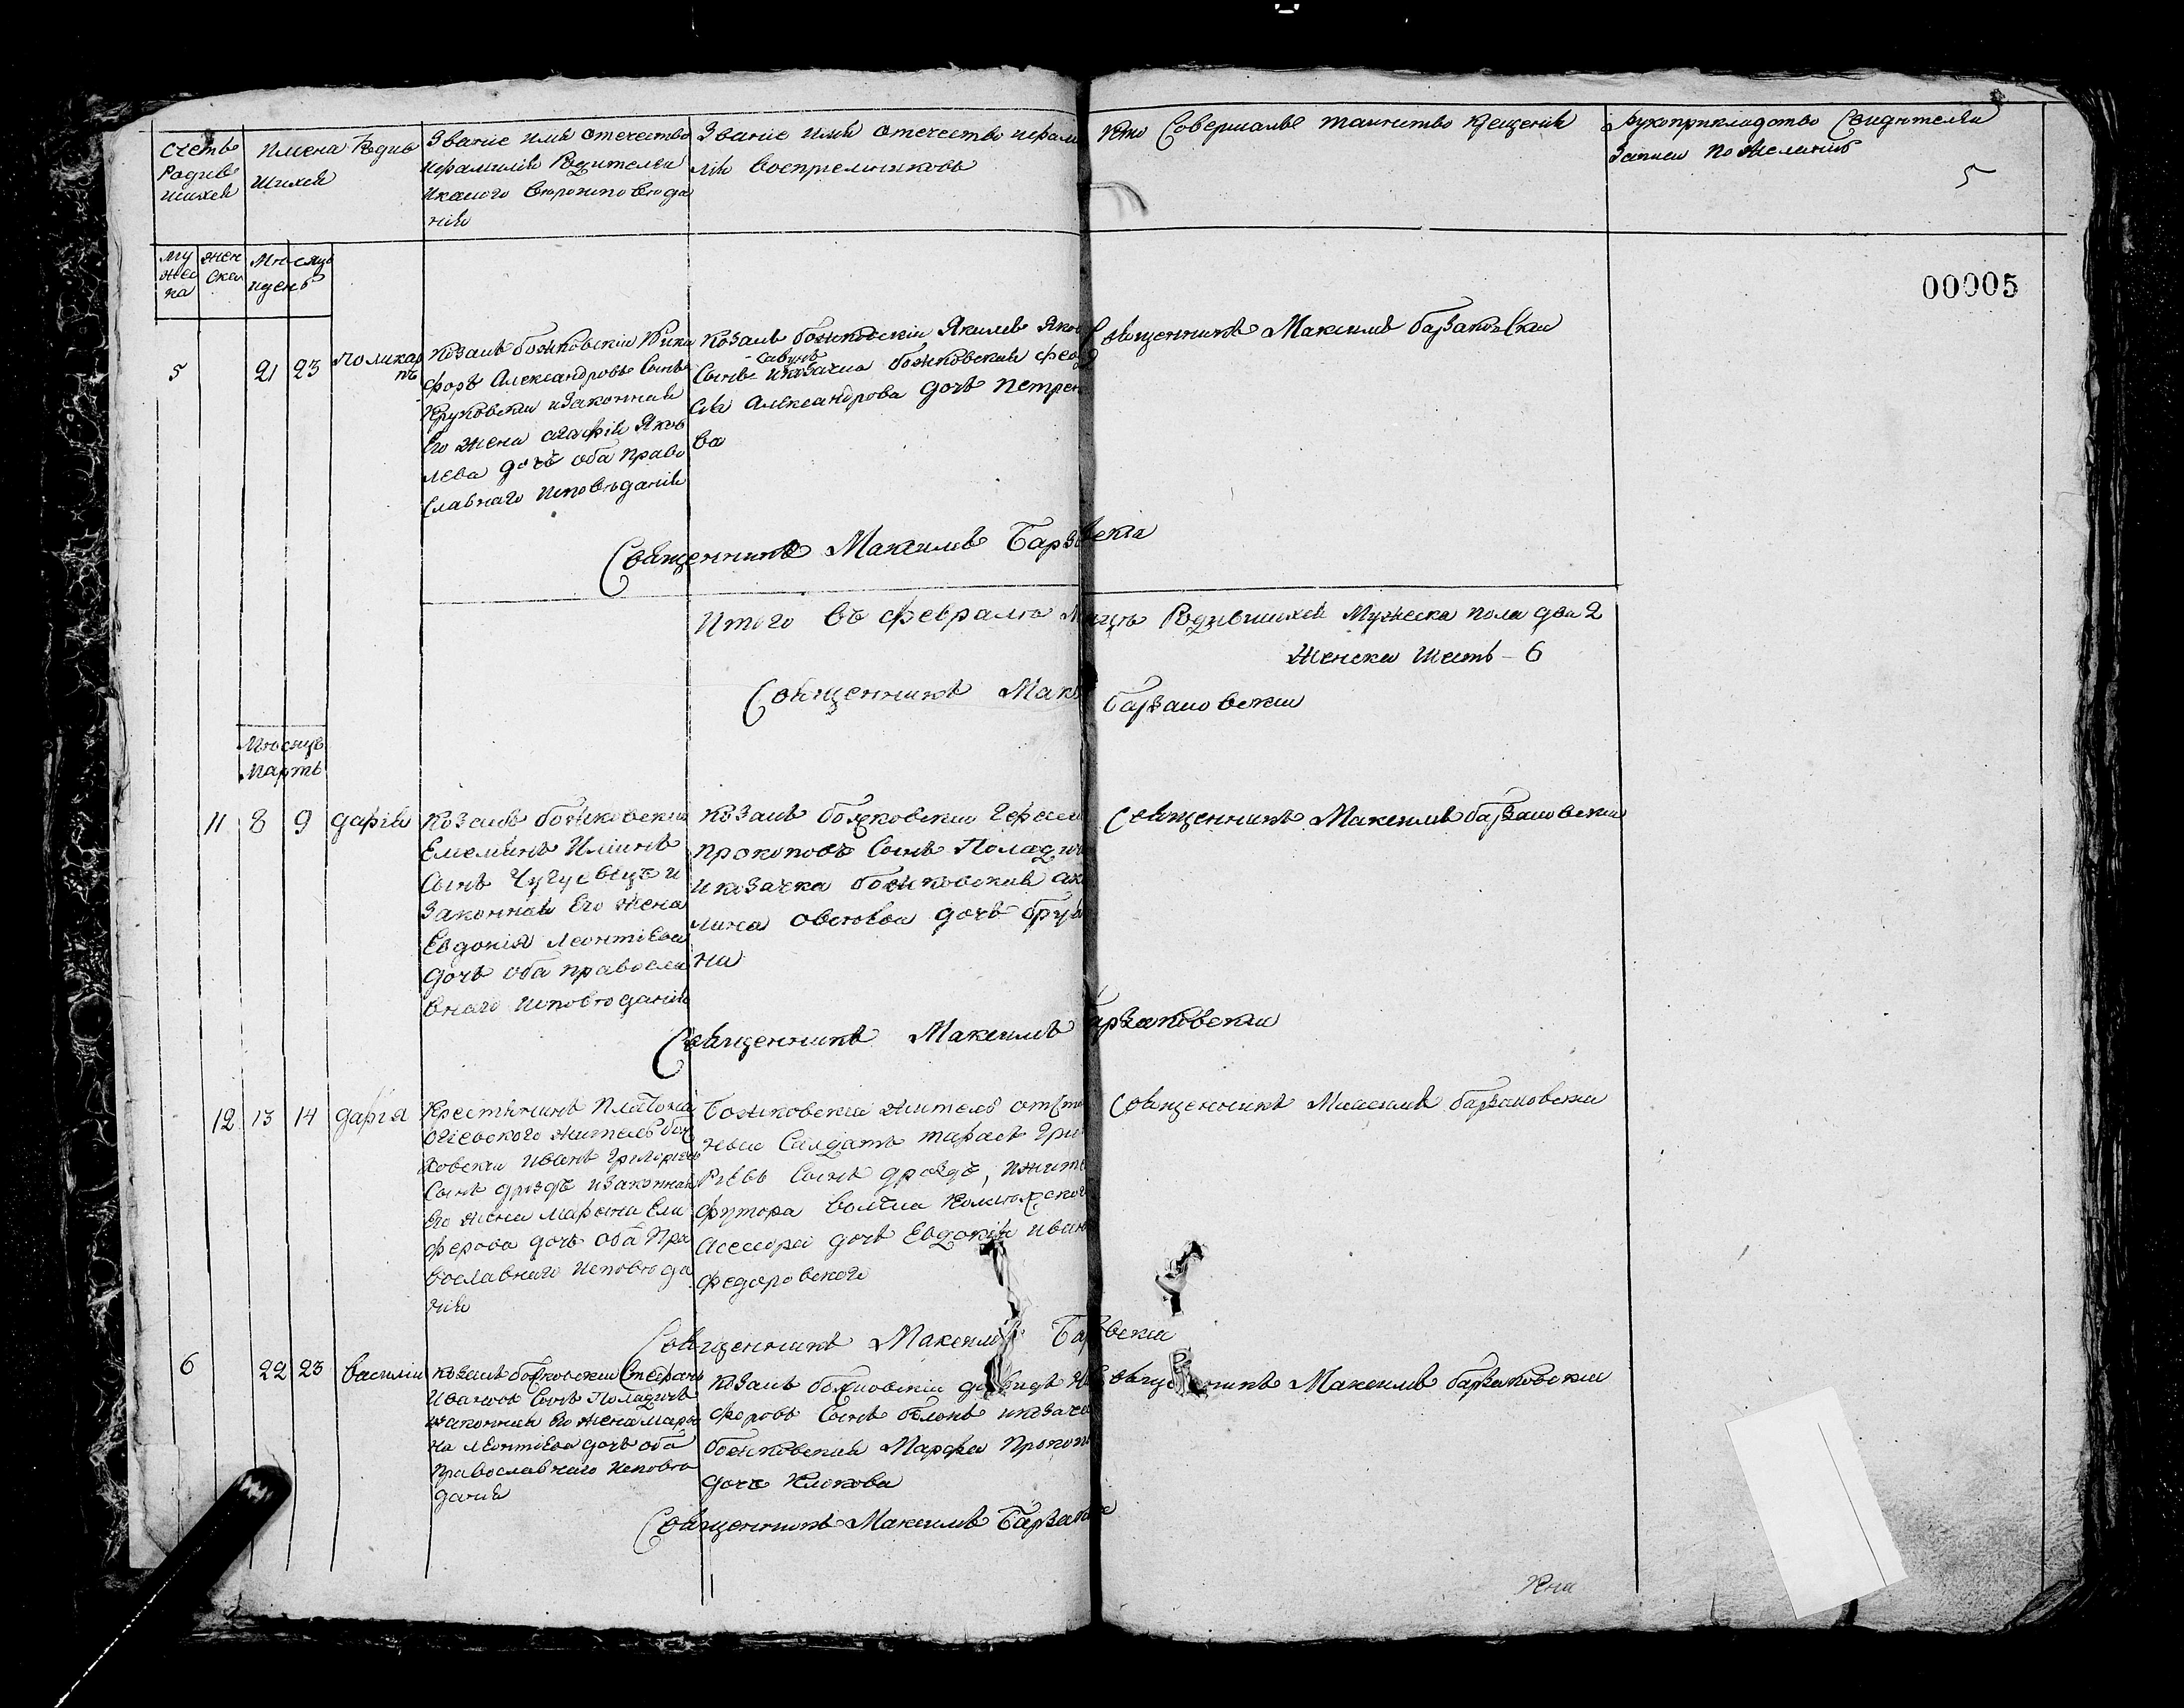 Счетъ
Родив
шихся
Имена Родив
шихся
Званіе имя отечество
ифамилія Родителей
икакого вѣроисповѣда
нія
Званіе имя отечество ифами
лія воспріемниковъ
Кто Совершалъ таинство крещенія
Рукоприкладство Свидѣтелей
Записи по желанію
5
му
жес
ка
жен
ска
Мѣсяцъ
иденъ
00005
5
21
23
Поликар
пъ
Козакъ божковскій Ники
форъ Александровъ Сынъ
Круковскій изаконная
Его жена агафія Яков
лева дочъ оба право
Славнаго исповѣданія
Козакъ божковскій Якимъ Яков
Савинъ
Сынъ иказачка божковская Феодо
Сія александрова дочъ Петрен
ва
Священникъ Максимъ барзаковскій
Священникъ Максимъ Барзвскій
Итого въ февралѣ Мсцѣ Родившихся Мужеска пола два 2
Женска шесть - 6
Священникъ Макс Барзаковскій
Мѣсяцъ
Мартъ
11
8
9
дарія
Козакъ божковскій
Емелянъ Иліинъ
Сынъ Чугуевецъ и
Законная Его жена
Евдокія Леонтіева
дочъ оба правосла
внаго исповѣданія
Козакъ божковскій Гарасим
прокоповъ Сынъ Поладич
иказачка божковская аку
лина овсѣева дочъ
на
Священникъ Максимъ барзаковскій
Священникъ Максимъ арзаковскій
12
13
14
дарія
Крестянинъ
жителъ бож
ковскій Иванъ Григоріевъ
Сынъ дроздъ изаконная
Его жена марѳна Ели
ферова дочъ оба Пра
вославнаго исповѣда
нія
Божковскій жителъ отста
ной Салдатъ тарасъ Гри
ріевъ Сынъ дроздъ, ижите
футора волчка колѣжског
Асесора дочъ Евдокія иван
федоровского
Священникъ Максимъ барзаковскій
Священникъ Максимъ Барвскій
6
22
23
василій
козакъ божковскій Стефанъ
Ивановъ Сынъ Поладичъ
изаконная Его жена мары
на Леонтіева дочъ оба
Православнаго исповѣ
данія
козакъ божковскій давидъ
форовъ Сынъ белокъ иказач
божковская Марфа Прокоп
дочъ Клюкова
вященникъ Максимъ барзаковскій
Священникъ Максимъ Барзаков
Кни